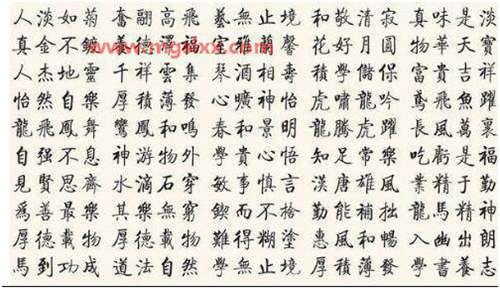 人淡如菊 奮翮高飛 藝無止境 和敬清寂 真味是淡
真金不鍍 德福 雅蘭馨 花好月圓 物華天寶
人杰地靈 千祥雲集 琴酒相壽 學儲保 富貴吉祥
怡然自樂 厚積薄發 心曠神怡 虎嘯龍吟 鳶飛魚躍
龍飛鳳舞 鸞鳳和鳴 春和景明 龍騰虎躍 長風萬裏
自强不息 神游物外 學貴心悟 知足常樂 吃虧是福
見賢思齊 水滴石穿 敏事慎言 漢唐雄風 業精于勤
爲善最樂 其樂無窮 鍥而不捨 勤能補拙 龍馬精神
厚德載物 厚德載物 難得糊塗 惠風和暢 入幽出朗
馬到功成 道法自然 學無止境 厚積薄發 學書養志